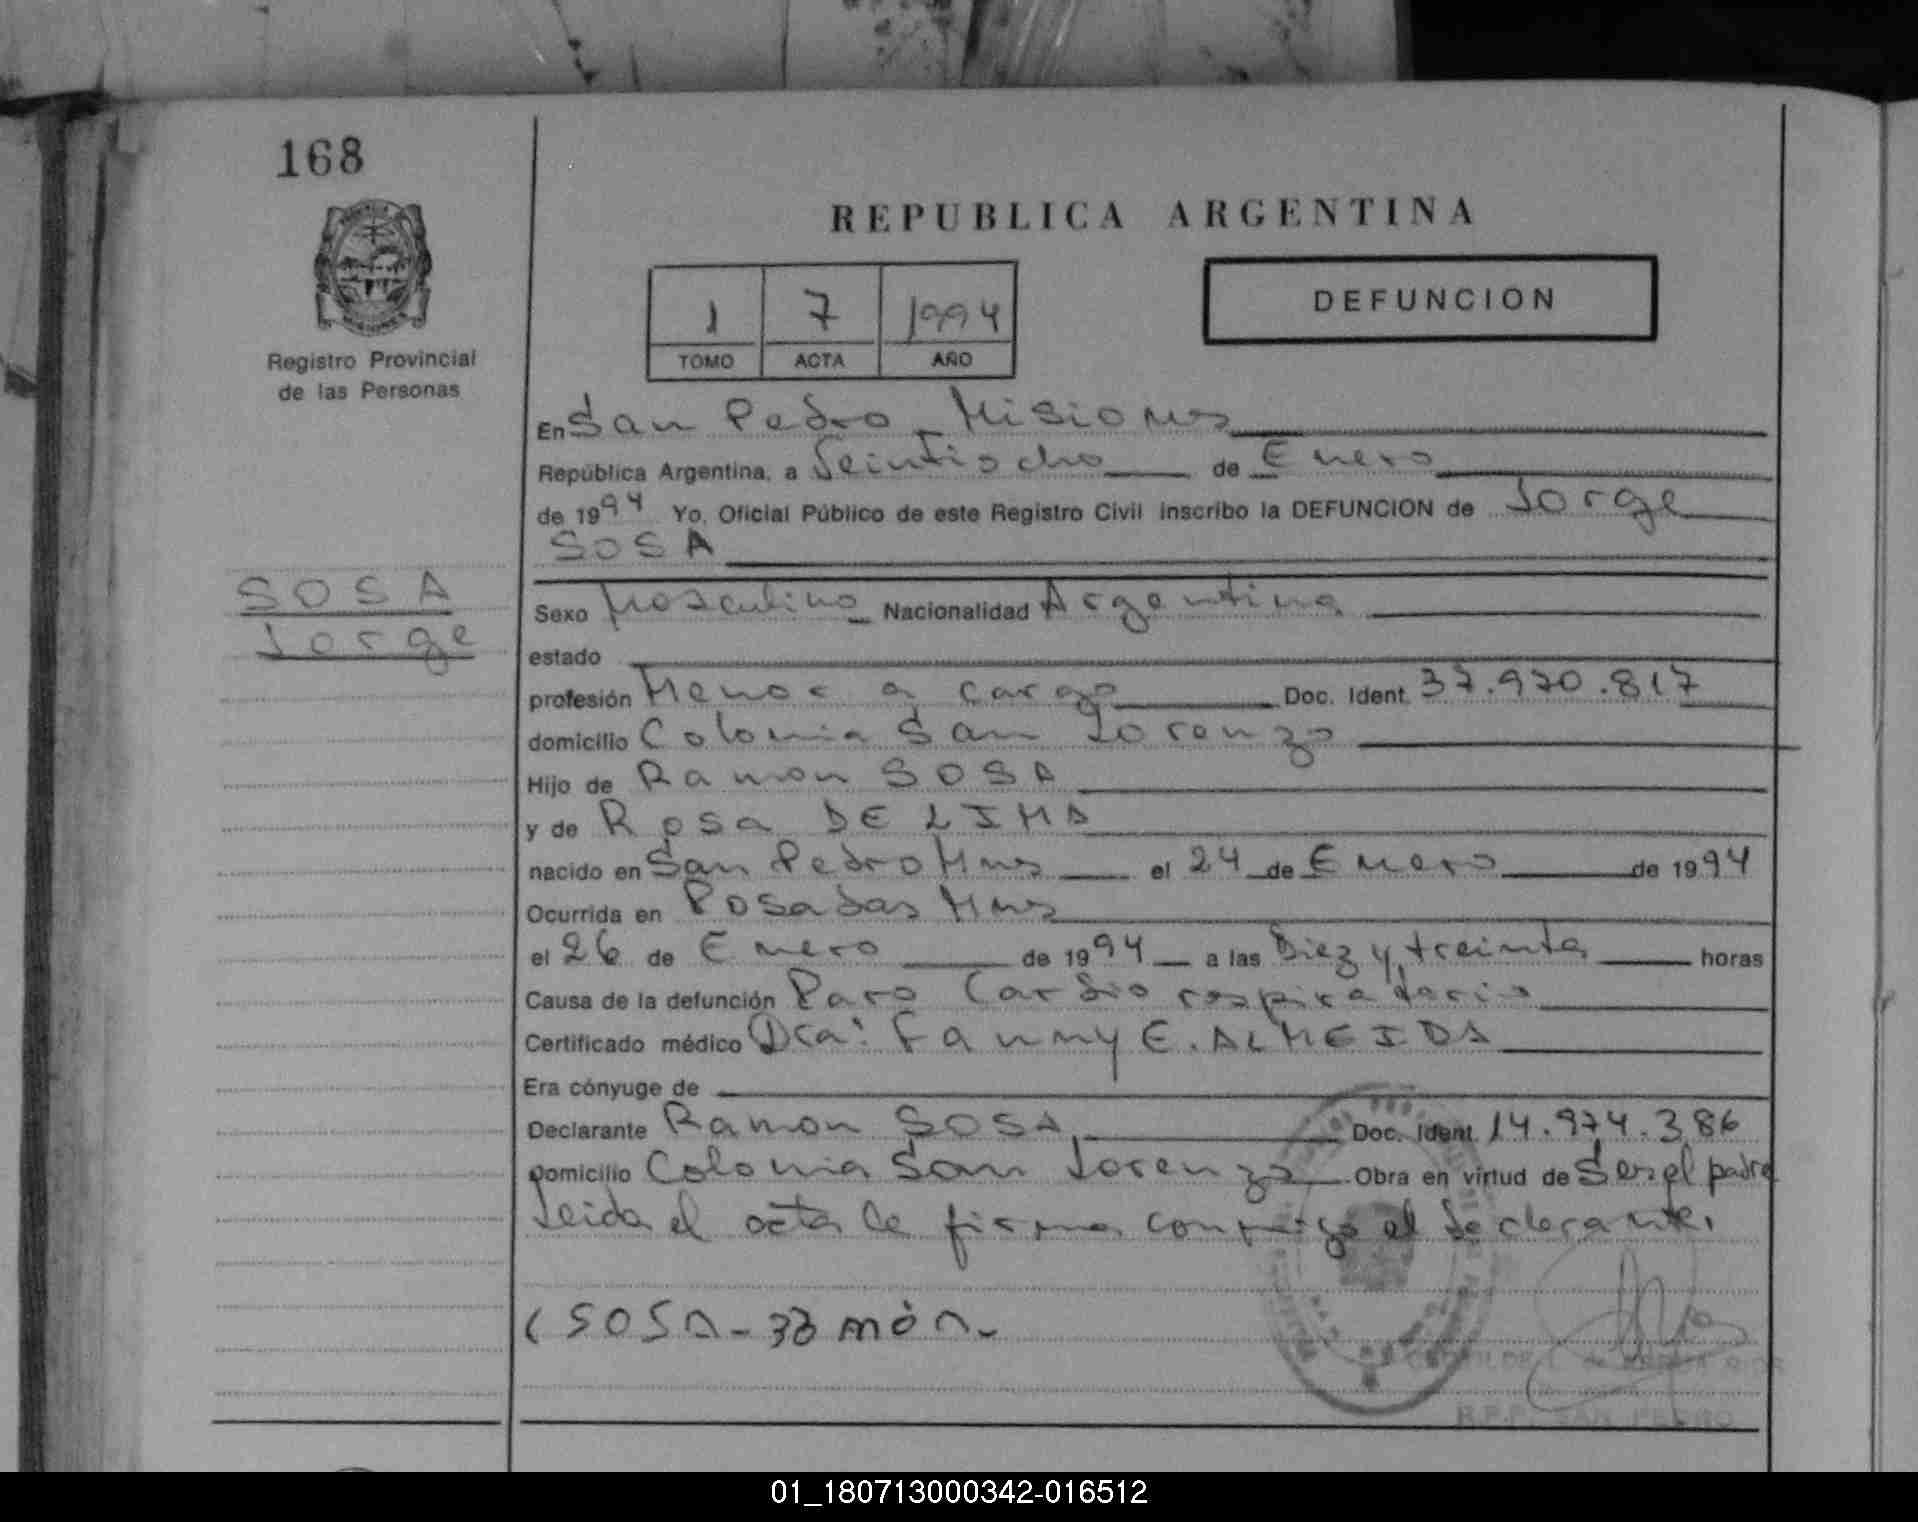 168
REPUBLICA ARGENTINA
Registro Provincial
de las Personas
1 7 1994
TOMO ACTA AÑO
DEFUNCION
En San Pedro Misiones
República Argentina, a Veintiocho de Enero
de 1994 Yo, Oficial Público de este Registro Civil inscribo la DEFUNCION de Jorge
SOSA
SOSA
Jorge
Sexo Masculino Nacionalidad Argentina
estado
profesión Menor a cargo Doc. Ident. 37.970.817
domicilio Colonia San Lorenzo
Hijo de Ramon SOSA
y de Rosa DE LIMA
nacido en San Pedro Mnes el 24 de Enero de 1994
Ocurrida en Posadas Mnes
el 26 de Enero de 1994 a las Diez y treinta horas
Causa de la defunción Paro Cardio respiratorio
Certificado médico Dra: Fanny E. ALMEIDA
Era cónyuge de
Declarante Ramon SOSA Doc. Ident. 14.974.386
Domicilio Colonia San Lorenzo Obra en virtud de Ser el padre
Leida el acta la firma conmigo el declarante.
SOSA - món -
R.P.P. SAN PEDRO
01_180713000342-016512